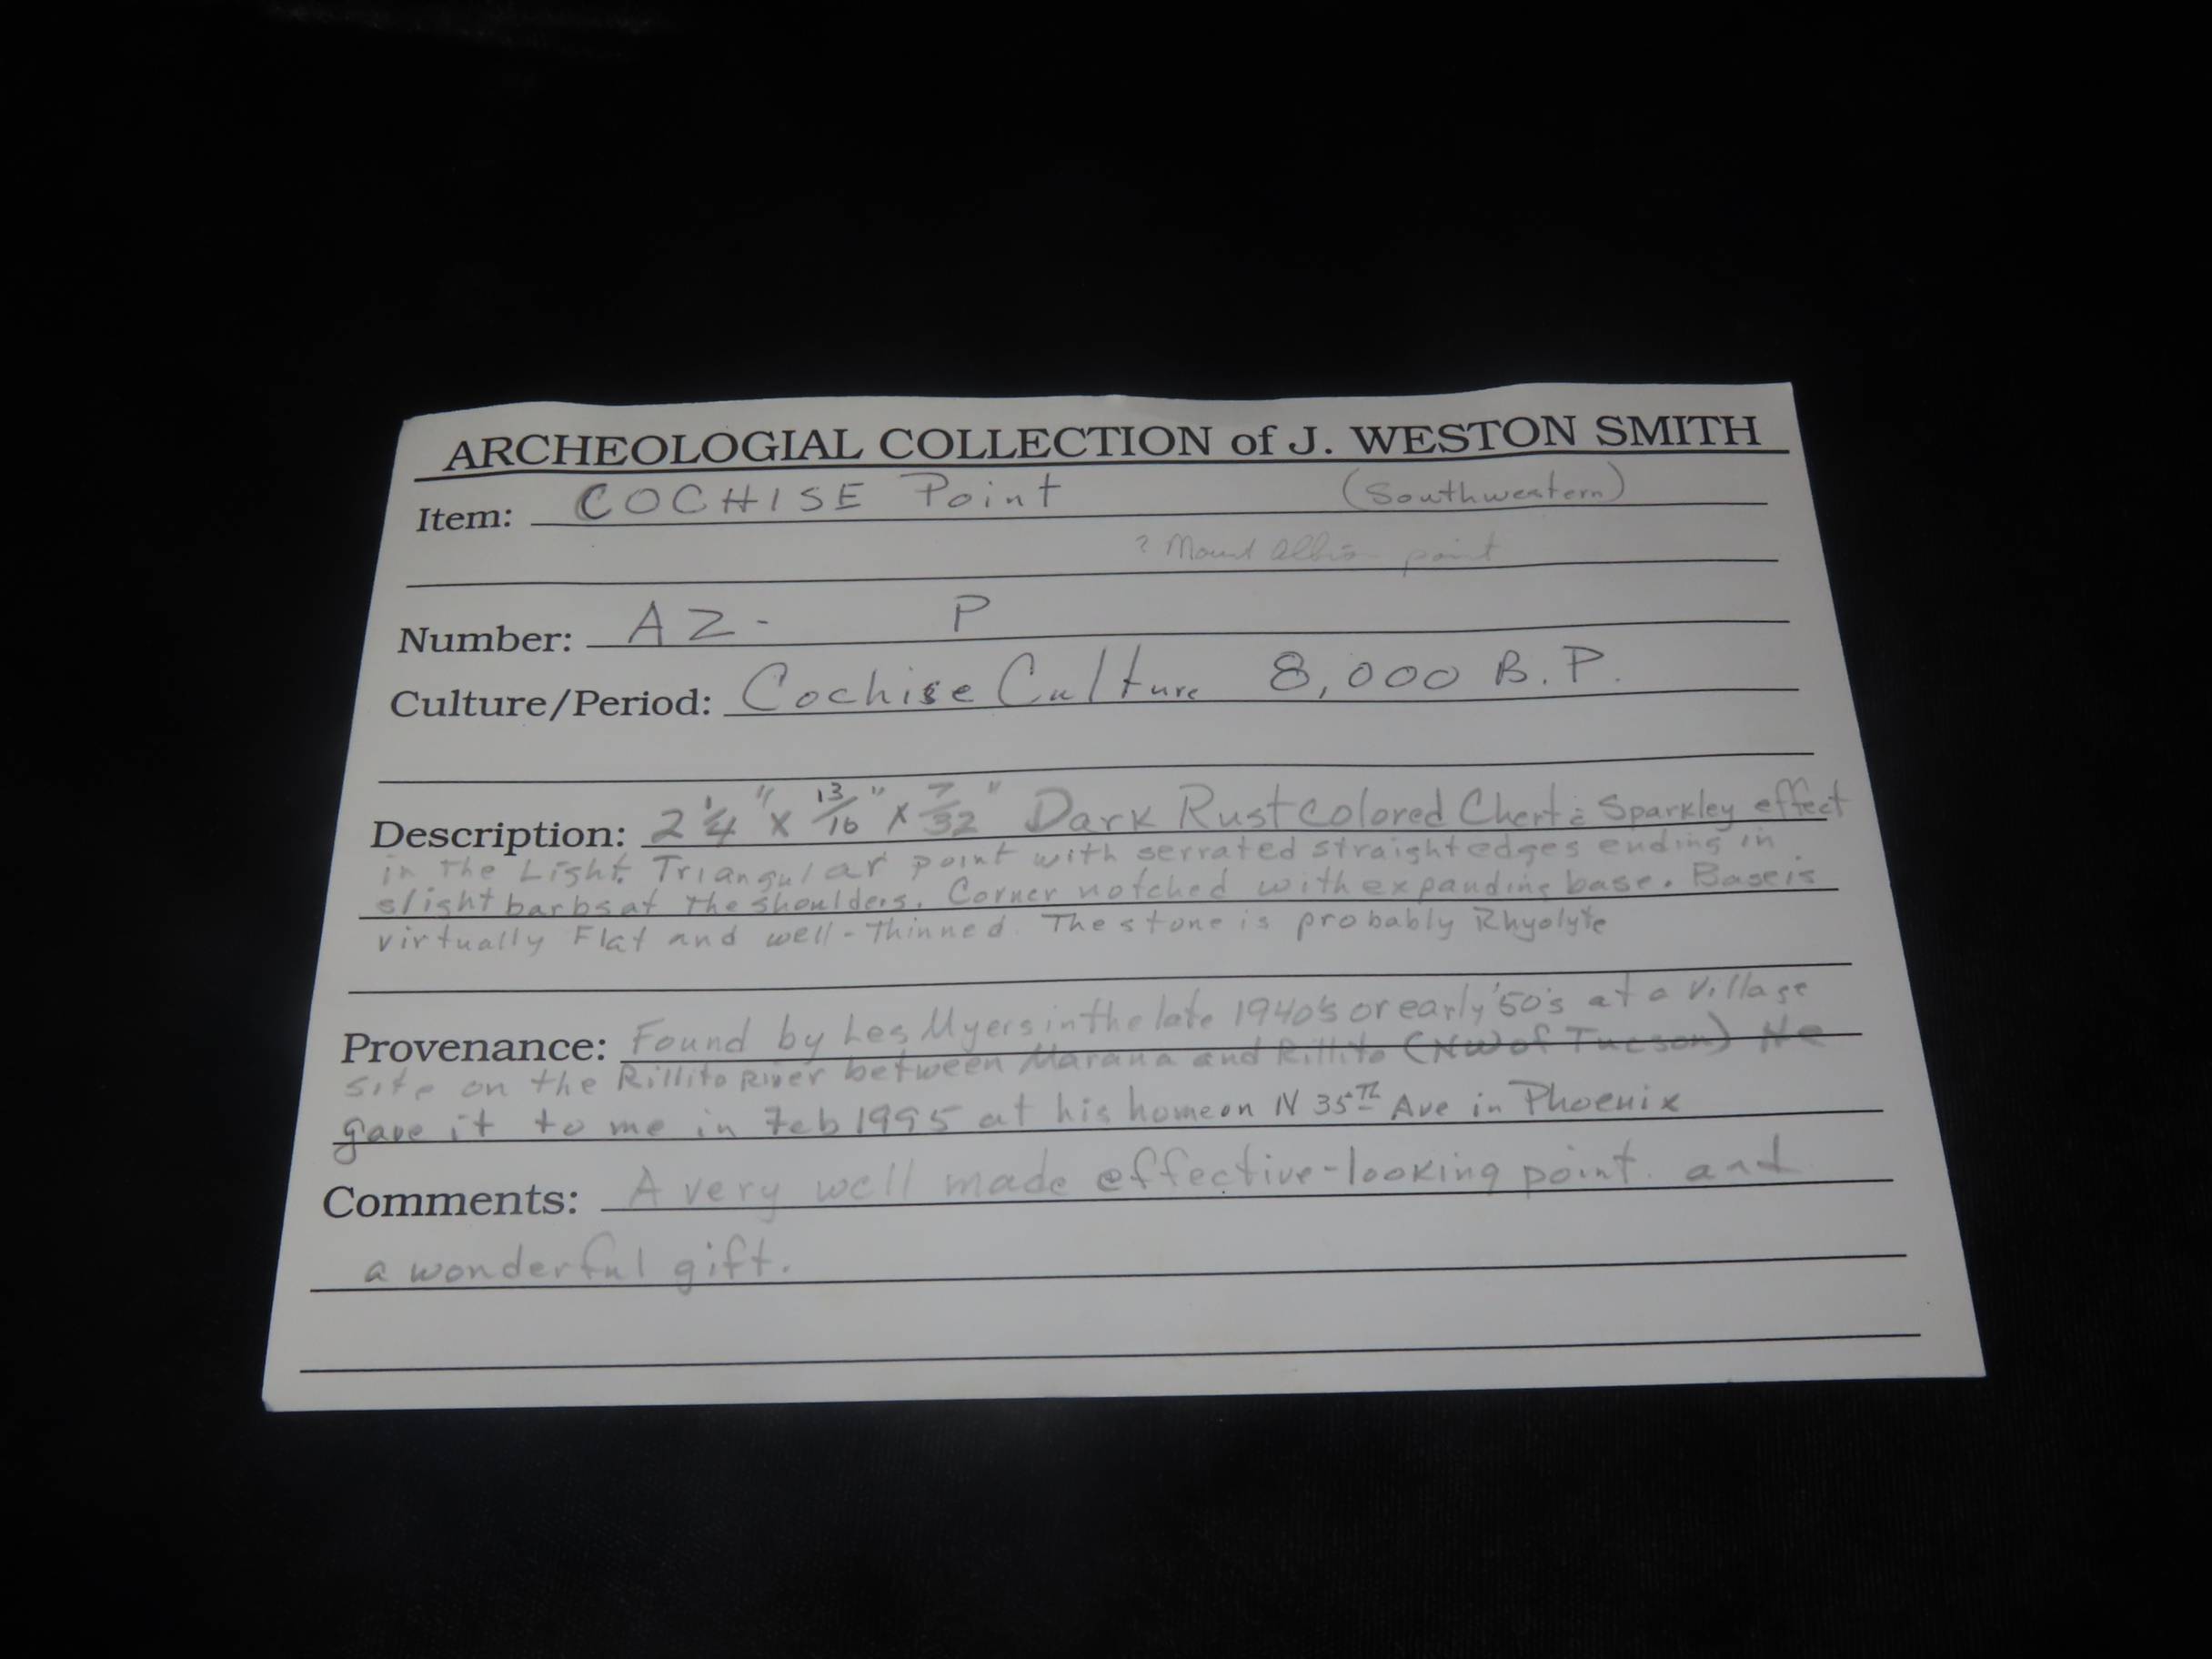 ARCHEOLOGIAL COLLECTION of J. WESTON SMITH
Item: COCHISE Point (Southwestern)
? Mount Albion point
Number: AZ- P
Culture/Period: Cochise Culture 8,000 B.P.
Description: 2 1/4" x 13/16" x 7/32" Dark Rust colored Chert: Sparkley effect
in the Light. Triangular point with serrated straight edges ending in
slight barbs at the shoulders. Corner notched with expanding base. Base is
virtually Flat and well-thinned. The stone is probably Rhyolyte
Provenance: Found by Les Myers in the late 1940's or early '50's at a village
site on the Rillito River between Marana and Rillito (NW of Tucson) He
gave it to me in Feb 1995 at his home on N 35TH Ave in Phoenix
Comments: A very well made effective-looking point. and
a wonderful gift.